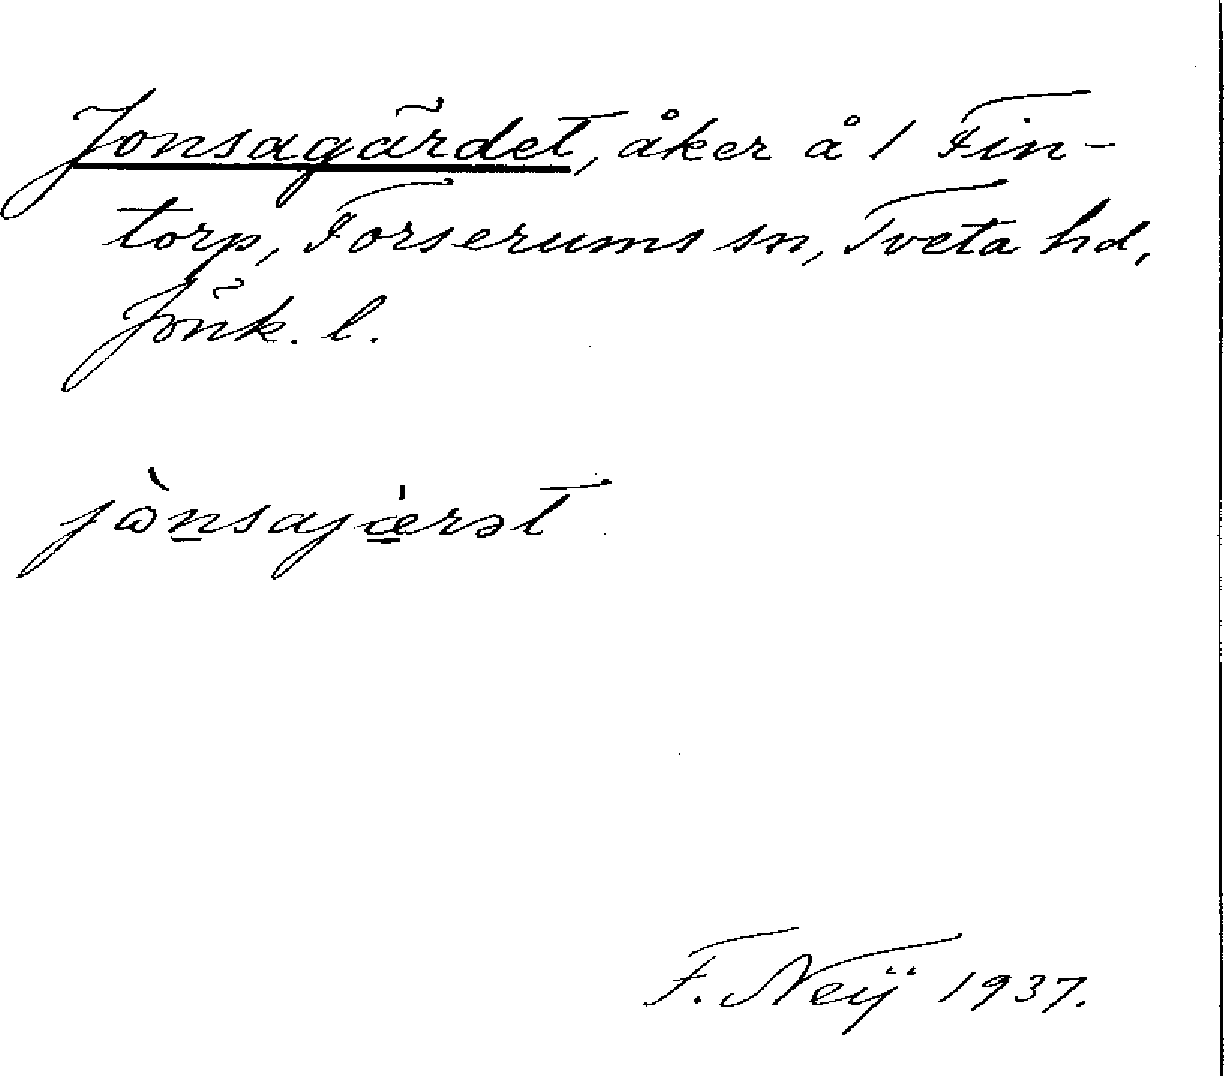 Jonsagärdet, åker å 1 Fin-
torp, Forserums sn, Tveta hd,
Jönk. l.
jὼnsajǽrət
F. Neij 1937.